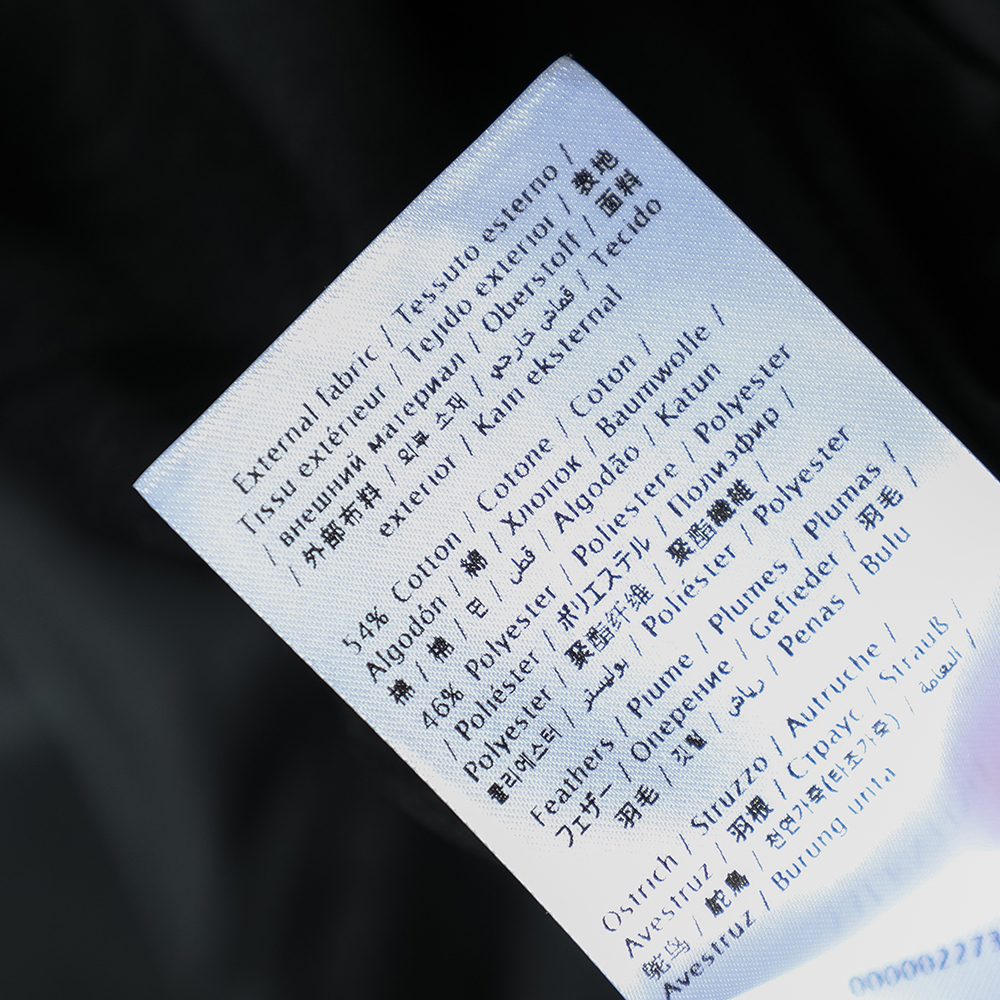 External fabric / Tessuto esterno /
Tissu extérieur / Tejido exterior / 表地
/ внешний материал / Oberstoff / 面料
/ 外部布料 / 외부 소재 / قماش خارجي / Tecido
exterior / Kain eksternal
54% Cotton / Cotone / Coton /
Algodón / 綿 / Хлопок / Baumwolle /
棉 / 棉 / 면 / قطن / Algodão / Katun
46% Polyester / Poliestere / Polyester
/ Poliéster / ポリエステル / Полиэфир /
Polyester / 聚酯纤维 / 聚酯纖維 /
폴리에스터 / بوليستر / Poliéster / Polyester
Feathers / Piume / Plumes / Plumas /
フェザー / Оперение / Gefieder / 羽毛 /
羽毛 / 깃털 / رياش / Penas / Bulu
Ostrich / Struzzo / Autruche /
Avestruz / 羽根 / Страус / Strauß /
鸵鸟 / 鴕鳥 / 천연가죽(타조가죽) / النعامة /
Avestruz / Burung unta
000002273